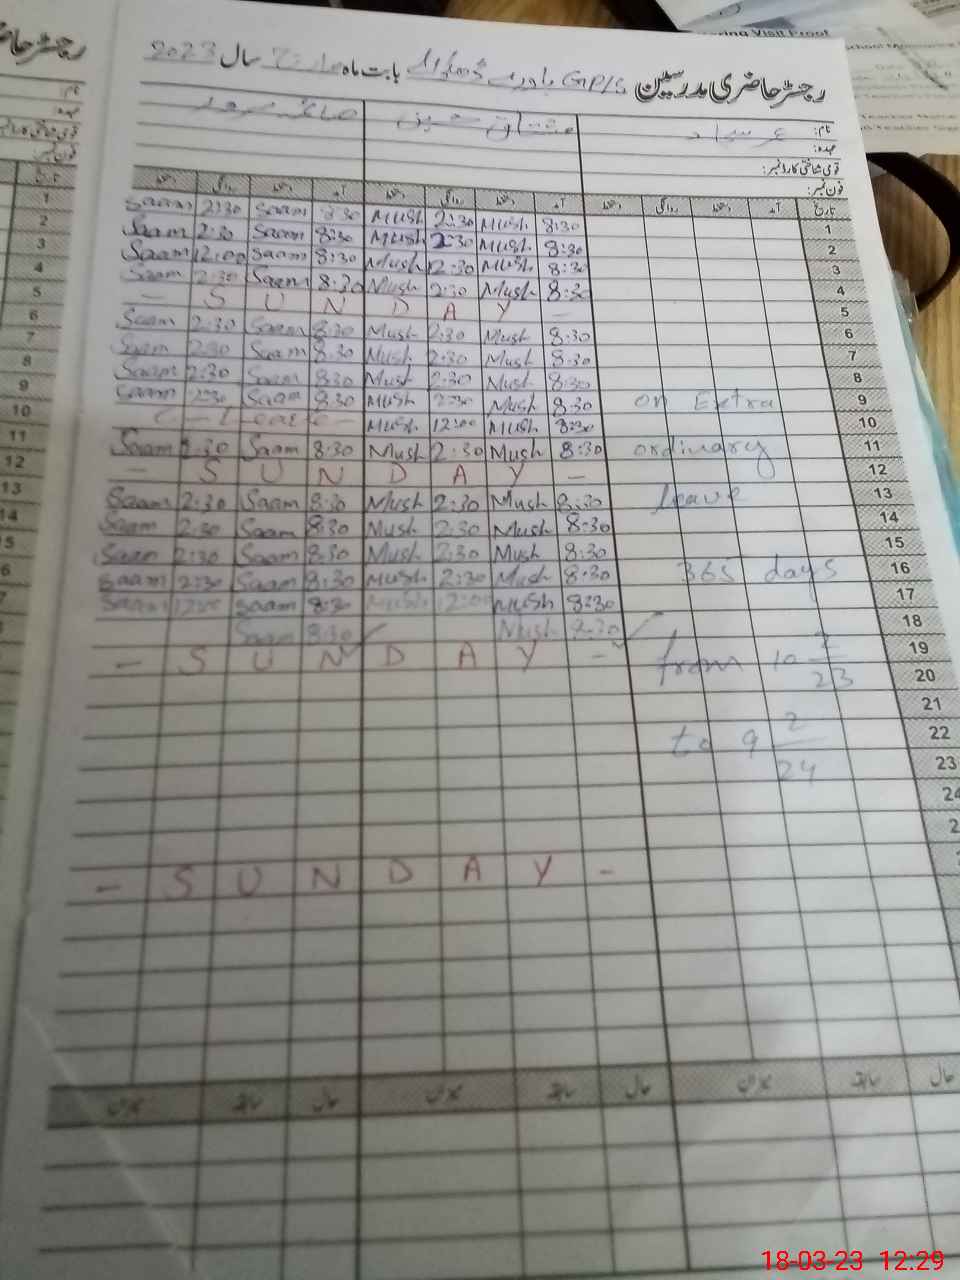 رجسٹر حاضری مدرسین GP/S بابت ماہ مارچ سال 2023
نام: مشتاق حسین
عہدہ:
قومی شناختی کارڈ نمبر:
فون نمبر:
تاریخ آمد دستخط روانگی دستخط آمد دستخط روانگی دستخط آمد دستخط روانگی دستخط
Saam 2:30 Saam 8:30 Mush 2:30 Mush 8:30 1
Saam 2:30 Saam 8:30 Mush 2:30 Mush 8:30 2
Saam 12:00 Saam 8:30 Mush 12:30 Mush 8:30 3
Saam 2:30 Saam 8:30 Mush 2:30 Mush 8:30 4
- S U N D A Y - 5
Saam 2:30 Saam 8:30 Mush 2:30 Mush 8:30 6
Saam 2:30 Saam 8:30 Mush 2:30 Mush 8:30 7
Saam 2:30 Saam 8:30 Mush 2:30 Mush 8:30 8
Saam 2:30 Saam 8:30 Mush 2:30 Mush 8:30 on Extra 9
C-Leave - Mush 12:00 Mush 8:30 10
Saam 2:30 Saam 8:30 Mush 2:30 Mush 8:30 ordinary 11
- S U N D A Y - 12
Saam 2:30 Saam 8:30 Mush 2:30 Mush 8:30 leave 13
Saam 2:30 Saam 8:30 Mush 2:30 Mush 8:30 14
Saam 2:30 Saam 8:30 Mush 2:30 Mush 8:30 15
Saam 2:30 Saam 8:30 Mush 2:30 Mush 8:30 365 days 16
Saam 12:00 Saam 8:30 Mush 12:00 Mush 8:30 17
Saam 8:30 Mush 8:30 18
- S U N D A Y - from 10 2/23 19
20
21
to 9 2/24 22
23
24
- S U N D A Y -
میزان سابقہ حال میزان سابقہ حال میزان سابقہ حال
18-03-23 12:29